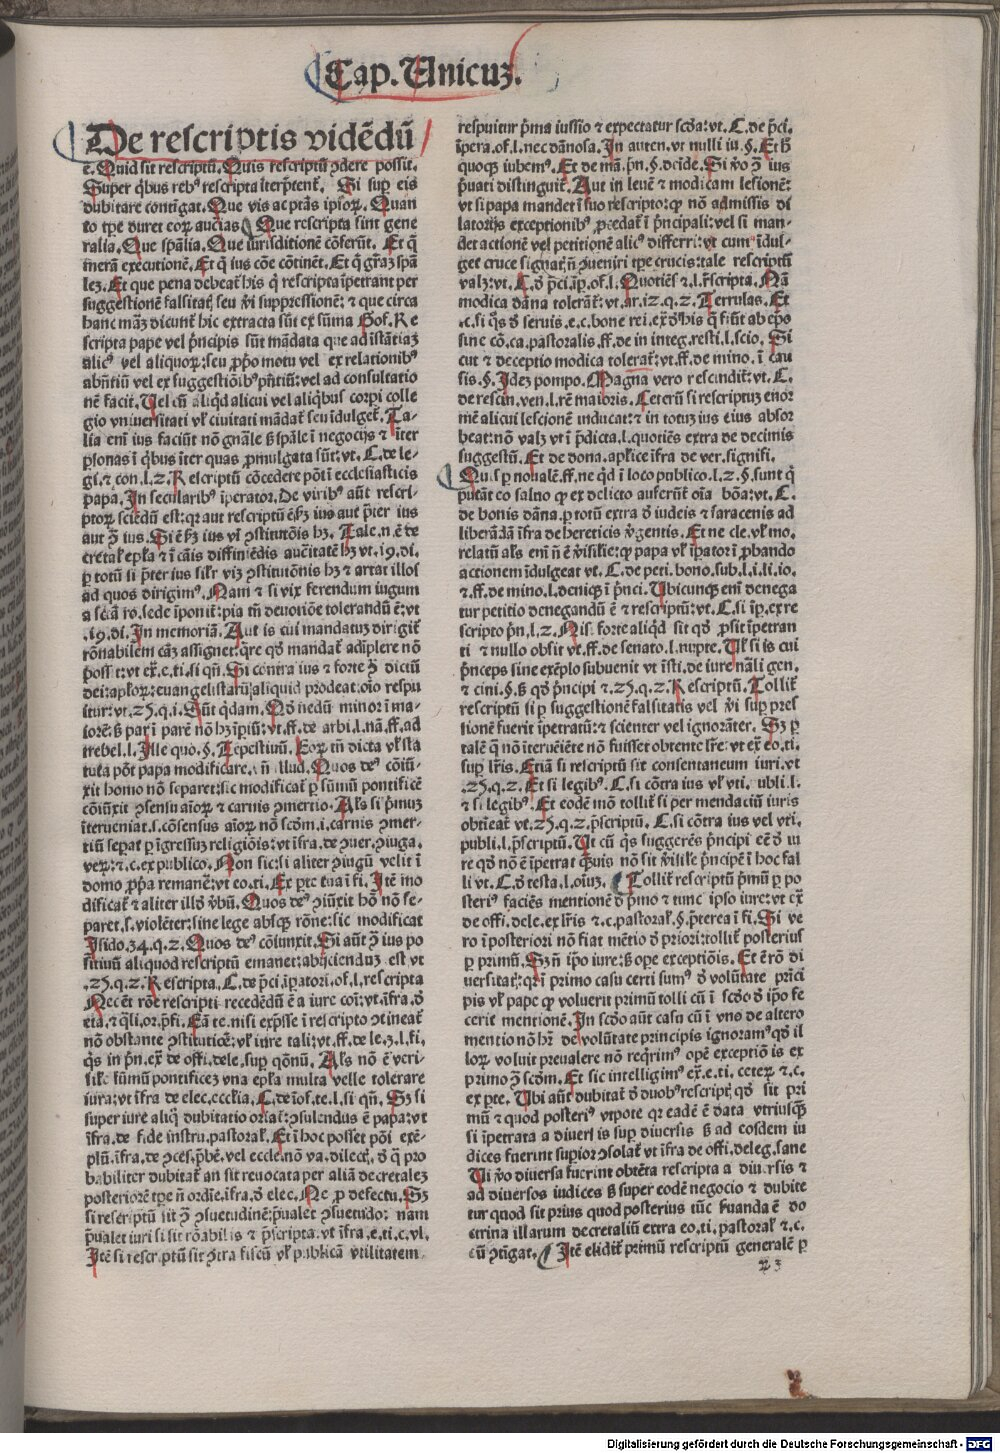 Cap. Unicuʒ.
De rescriptis vidēdū
ē. Quid sit rescriptū. Quis rescriptū ꝯdere possit.
Super qͥbus rebꝰ rescripta īterp̄tentᷣ. Si suꝑ eis
dubitare contīgat. Que vis acp̄tās ipsoꝝ. Quan
to tꝑe duret eoꝝ aucͭas. Que rescripta sint gene
ralia. Que spālia. Que iurisditionē cōferūt. Et q̄
merā executionē. Et q̄ ius cōe cōtinēt. Et q̄ gr̄aʒ spā
leʒ. Et que pena debeatᷣ his q̄ rescripta īpetrant per
suggestionē falsitatꝭ seu v̄i suppressionē: ⁊ que circa
hanc mā dicunt᷑ hic extracta sūt ex sūma Gof. Re
scripta pape vel pͥncipis sūt mādata que ad īstātiaʒ
alicꝰ vel aliquoꝝ: seu ꝓpͥo motu vel ex relationibꝰ
abn̄tiū vel ex suggestiōibꝰ pn̄tiū: vel ad consultatio
nē facit. Uel cū aliqd alicui vel aliqͥbus corpi colle
gio vniuersitati vl̓ ciuitati mādat᷑ seu īdulget᷑. Ta
lia em̄ ius faciūt nō gn̄ale ß spāle ī negocijs ⁊ īter
ꝑsonas ī qͥbus īter quas ꝓmulgata sūt: vt. C. de le-
gi. ⁊ con. l. 2. Rescriptū cōcedere pōt ī ecclesiasticis
papa. In secularibꝰ īperator. De viribꝰ aūt rescri-
ptoꝝ sciēdū est: qr aut rescriptū ē ẜʒ ius aut p̄ter ius
aut ꝯ̄ ius. Si ē ẜʒ ius vl̓ ꝯstitutōis hʒ. Tale. n. ē de
cretal̓ ep̄la ⁊ ī cāis diffiniēdis auc̄itatē hʒ vt. 19. di.
ꝑ totū si p̄ter ius sil̓r viʒ ꝯstitutōnis hʒ ⁊ artat illos
ad quos dirigim᷑. Nam ⁊ si vix ferendum iugum
a sc̄ā ro. sede īponit᷑: pia tn̄ deuotiōe tolerandū ē: vt
.19. di. In memoriā. Aut is cui mandatuʒ dirigit᷑
rōnabilem cāʒ assignet: q̄re qd̓ mandat᷑ adīplere nō
posst: vt ex̄. e. ti. si qn̄. Si contra ius ⁊ forte ꝯ̄ dictū
dei: apl̓oꝝ: euangelistarū aliquid prodeat: oīo respu
itur: vt. 25. q. i. Sūt qͥdam. Qd̓ nedū minor ī ma-
iorē: ß par ī parē nō hʒ īp̄iū: vt. ff. de arbi. l. nā. ff. ad
trebel. l. Ille quo. §. Tēpestiuū. Eoꝝ tn̄ dicta vl̓ sta
tuta pōt papa modificare. n̄ illud. Quos deꝰ cōiū-
xit homo nō separet: sic modificat᷑ ꝑ sūmū pontificē
cōiūxit ꝯsensu aīoꝝ ⁊ carnis ꝯmertio. Al̓s si pͥmuʒ
īterueniat. s. cōsensus aīoꝝ nō scd̓m. i. carnis ꝯmer-
tiū sepat᷑ ꝑ īgressuʒ religiōis: vt īfra. de ꝯuer. ꝯiuga.
veꝝ: ⁊. c. ex publico. Non sic: si aliter ꝯiugū velit ī
domo ꝓpͥa remanē: vt eo. ti. Ex ꝑte tua ī fi. Itē mo
dificat᷑ ⁊ aliter illd̓ ꝟbū. Quos deꝰ ꝯiūxit hō nō se-
paret. s. violēter: sine lege absqꝫ rōne: sic modificat
Isido. 34. q. 2. Quos deꝰ cōiunxit. Si aūt ꝯ̄ ius po
sitiuū aliquod rescriptū emanet: abijciendus est vt
.25. q. 2. Rescripta. C. de pͥci. īꝑatori. of. l. rescripta
Nec ēt rōe rescripti recedēdū ē a iure coī: vt. īfra. d̓
eta. ⁊ qͥli. or. p̄fi. Eā te. nisi expͥsse ī rescripto ꝯtineat᷑
nō obstante ꝯstitutiōe: vl̓ iure tali: vt. ff. de le. 3. l. fi.
qͥs in pn̄. ex̄ de offi. dele. suꝑ qōnū. Al̓s nō ē veri-
sile sūmum pontificeʒ vna ep̄la multa velle tolerare
iura: vt īfra de elec. eccl̓ia. C. de īof. te. l. si qn̄. Sʒ si
super iure aliqͦ dubitatio oriat᷑: ꝯsulendus ē papa: vt
īfra. de fide instru. pastoral̓. Et ī hoc posset pōi exē-
plū. īfra. de ꝓces. p̄bē. vel eccl̓enō va. dilecꝭ. d̓ q̄ pro
babiliter dubitat᷑ an sit reuocata per aliā decretaleʒ
posteriorē tꝑe n̄ ordīe. īfra. d̓ elec. Ne ꝓ defectu. Sʒ
si rescriptū sit ꝯ̄ ꝯsuetudinē: p̄ualet ꝯsuetudo: nam
p̄ualet iuri si sit rōabilis ⁊ p̄scripta. vt īfra. e. ti. c. vl.
Itē si rescriptū sit ꝯtra fiscū vl̓ publicā vtilitatem
respuitur pͥma iussio ⁊ expectatur scd̓a: vt. C. de pͥci.
īpera. of. l. nec dānosa. In auten. vt nulli iu. §. Et ß
quoqꝫ iubemꝰ. Et de mā. pͥn. §. dcide. Si ꝟo ꝯ̄ ius
pͥuati distinguit᷑. Aut in leuē ⁊ modicam lesionē:
vt si papa mandet ī suo rescripto: qꝫ nō admissis di
latorijs exceptionibꝰ ꝓcedat᷑ ī pͥncipali: vel si man-
det actionem vel petitionē alicꝰ differri: vt cum īdul-
get cruce signatꝭ n̄ ꝯueniri tꝑe crucis: tale rescriptū
valʒ: vt. C. d̓ pͥci. īꝑ. of. l. Quotiēs ⁊. l. r̄scripta. Nā
modica dāna tolerāt᷑: vt. ar. 12. q. 2. Terrulas. Et
.c. si qͥs d̓ seruis. e. c. bone rei. ex̄ d̓ his q̄ fiūt ab ep̄o
sine cō. ca. pastoralis. ff. de in integ. resti. l. scio. Si
cut ⁊ deceptio modica tolerat᷑: vt. ff. de mino. ī cau
sis. §. Ideʒ pompo. Magna vero rescindit᷑: vt. C.
de rescin. ven. l. rē maioris. Ceterū si rescriptuʒ enor
mē alicui lesionē inducat: ⁊ in totuʒ ius eius absor
beat: nō valʒ vt ī p̄dicta. l. quotiēs extra de decimis
suggestū. Et de dona. apl̓ice īfra de ver. signifi.
Quis ꝑ nouale. ff. ne qͥd ī loco publico. l. 2. §. sunt q̄
putāt eo saluo qꝫ ex delicto auferūt oīa bōa: vt. C.
de bonis dāna. ꝑ totū extra d̓ iudeis ⁊ saracenis ad
liberādā īfra de hereticis ꝟgentis. Et ne cle. vl̓ mo.
relatū al̓s em̄ n̄ ē v̓isile: qꝫ papa vl̓ īꝑator ī ꝓbando
actionem īdulgeat vt. C. de peti. bono. sub. l. i. li. io.
⁊. ff. de mino. l. deniqꝫ ī pͥnci. Ubicunqꝫ em̄ denega
tur petitio denegandū ē ⁊ rescriptū: vt. C. si īꝑ. ex re
scripto pn̄. l. 2. Nisi forte aliqd sit qd̓ ꝓsit īpetran
ti ⁊ nullo obsit vt. ff. de senato. l. nupte. Ul̓ si is cui
pͥnceps sine exēplo subuenit vt īsti. de iure nāli gen.
⁊ cini. §. ß qd̓ pͥncipi ⁊. 25. q. 2. Rescriptū. Tollit᷑
rescriptū si ꝑ suggestionē falsitatis vel v̄i supp̄res
sionē fuerit īpetratū: ⁊ scienter vel ignorāter. Sʒ ꝑ
talē q̄ nō īteruēiēte nō fuisset obtente lr̄e: vt ex̄ eo. ti.
suꝑ lr̄is. Etiā si rescriptū sit consentaneum iuri. vt
.25. q. 2. Et si legibꝰ. C. si cōtra ius vl̓ vti. publi. l.
⁊ si legibꝰ. Et eodē mō tollit᷑ si per mendaciū iuris
obtīeat᷑ vt. 25. q. 2. p̄scriptū. C. si cōtra ius vel vti.
publi. l. p̄scriptū. Ut cū qͥs suggerēs pͥncipi eē d̓ iu
re qd̓ nō ē īpetrat qͣuis nō sit v̓isile pͥncipē ī hoc fal
li vt. C. d̓ testa. l. oīuʒ. Tollit᷑ rescriptū pͥmū ꝑ po
steriꝰ faciēs mentionē d̓ pͥmo ⁊ tunc ipso iure: vt ex̄
de offi. dele. ex lr̄is ⁊. c. pastoral̓. §. p̄terea ī fi. Si ve
ro ī posteriori nō fiat mētio d̓ priori: tollit᷑ posterius
ꝑ primū. Sʒ n̄ ipo iure: ß ope exceptiōis. Et ē rō di
uersitatꝭ: qr ī primo casu certi sumꝰ d̓ volūtate pͥnci
pis vl̓ pape qꝫ voluerit primū tolli cū ī scd̓o d̓ ip̄o fe
cerit mentionē. In scd̓o aūt casu cū ī vno de altero
mentio nō hr̄ de volūtate principis ignoramꝰ qd̓ il
loꝝ voluit preualere nō reqͥrimꝰ opē exceptiō is ex
primo ꝯ̄ scd̓m. Et sic intelligimꝰ ex̄. e. ti. ceteꝝ ⁊. c.
ex ꝑte. Ubi aūt dubitat᷑ d̓ duobꝰ rescriptꝭ qd̓ sit pri
mū ⁊ quod posteriꝰ vtpote qr eadē ē data vtriusqꝫ
si īpetrata a diuersis suꝑ diuersis ß ad eosdem iu
dices fuerint superior ꝯsolat᷑ vt īfra de offi. deleg. sane
Ui ꝟo diuersa fuerint obtēta rescripta a diuersis ⁊
ad diuersos iudices ß super eodē negocio ⁊ dubite
tur quod sit prius quod posterius tūc ẜuanda ē do
ctrina illarum decretaliū extra eo. ti. pastoral̓ ⁊. c.
cū ꝯtīgat. Itē elidit᷑ primū rescriptū generalē ꝑ
Digitalisierung gefördert durch die Deutsche Forschungsgemeinschaft - DFG